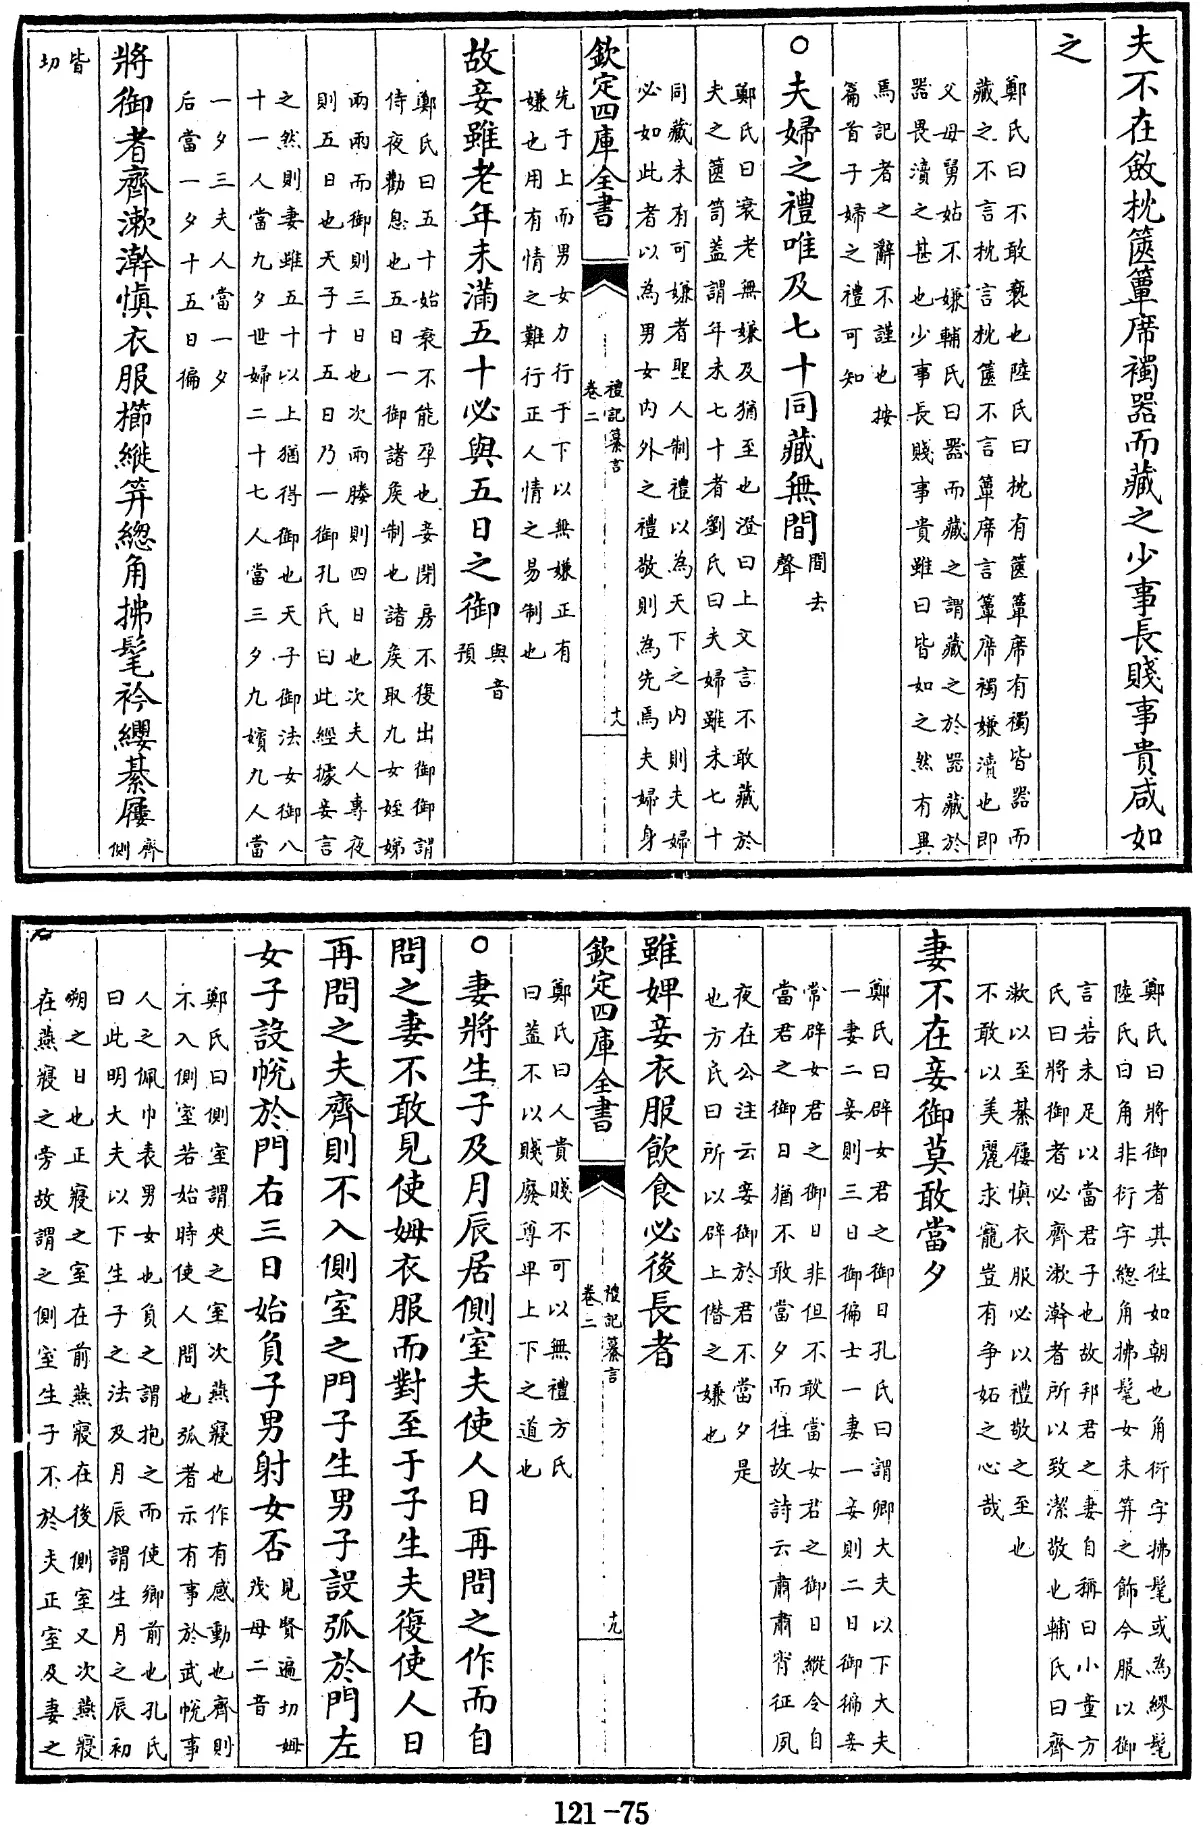 夫不在斂枕篋簟席襡器而藏之少事長賤事貴咸如
之
鄭氏曰不敢褻也陸氏曰枕有篋簟席有襡皆器而
藏之不言枕言枕篋不言簟席言簟席襡嫌瀆也即
父母舅姑不嫌輔氏曰器而藏之謂藏之於器藏於
器畏瀆之甚也少事長賤事貴雖曰皆如之然有異
焉記者之辭不謹也按
篇首子婦之禮可知
○夫婦之禮唯及七十同藏無間間去聲
鄭氏曰衰老無嫌及猶至也澄曰上文言不敢藏於
夫之篋笥蓋謂年未七十者劉氏曰夫婦雖未七十
同藏未有可嫌者聖人制禮以為天下之内則夫婦
必如此者以為男女内外之禮敬則為先焉夫婦身
欽定四庫全書 禮記纂言卷二 十八
先于上而男女力行于下以無嫌正有
嫌也用有情之難行正人情之易制也
故妾雖老年未滿五十必與五日之御與音預
鄭氏曰五十始衰不能孕也妾閉房不復出御御謂
侍夜勸息也五日一御諸矦制也諸矦取九女姪娣
兩兩而御則三日也次兩媵則四日也次夫人專夜
則五日也天子十五日乃一御孔氏曰此經據妾言
之然則妻雖五十以上猶得御也天子御法女御八
十一人當九夕世婦二十七人當三夕九嬪九人當
一夕三夫人當一夕
后當一夕十五日徧
將御者齊漱澣慎衣服櫛縰笄緫角拂髦衿纓綦屨齊側
皆切
鄭氏曰將御者其徃如朝也角衍字拂髦或為繆髦
陸氏曰角非衍字緫角拂髦女未笄之飾今服以御
言若未足以當君子也故邦君之妻自稱曰小童方
氏曰將御者必齊漱澣者所以致潔敬也輔氏曰齊
漱以至綦屨慎衣服必以禮敬之至也
不敢以美麗求寵豈有争妬之心哉
妻不在妾御莫敢當夕
鄭氏曰辟女君之御日孔氏曰謂卿大夫以下大夫
一妻二妾則三日御徧士一妻一妾則二日御徧妾
常辟女君之御日非但不敢當女君之御日縱令自
當君之御日猶不敢當夕而往故詩云肅肅宵征夙
夜在公注云妾御於君不當夕是
也方氏曰所以辟上僭之嫌也
雖婢妾衣服飲食必後長者
欽定四庫全書 禮記纂言卷二 十九
鄭氏曰人貴賤不可以無禮方氏
曰蓋不以賤廢尊卑上下之道也
○妻將生子及月辰居側室夫使人日再問之作而自
問之妻不敢見使姆衣服而對至于子生夫復使人日
再問之夫齊則不入側室之門子生男子設弧於門左
女子設帨於門右三日始負子男射女否見賢遍切姆茂母二音
鄭氏曰側室謂夾之室次燕寢也作有感動也齊則
不入側室若始時使人問也弧者示有事於武帨事
人之佩巾表男女也負之謂抱之而使鄉前也孔氏
曰此明大夫以下生子之法及月辰謂生月之辰初
朔之日也正寢之室在前燕寢在後側室又次燕寢
在燕寢之旁故謂之側室生子不於夫正室及妻之
121-75